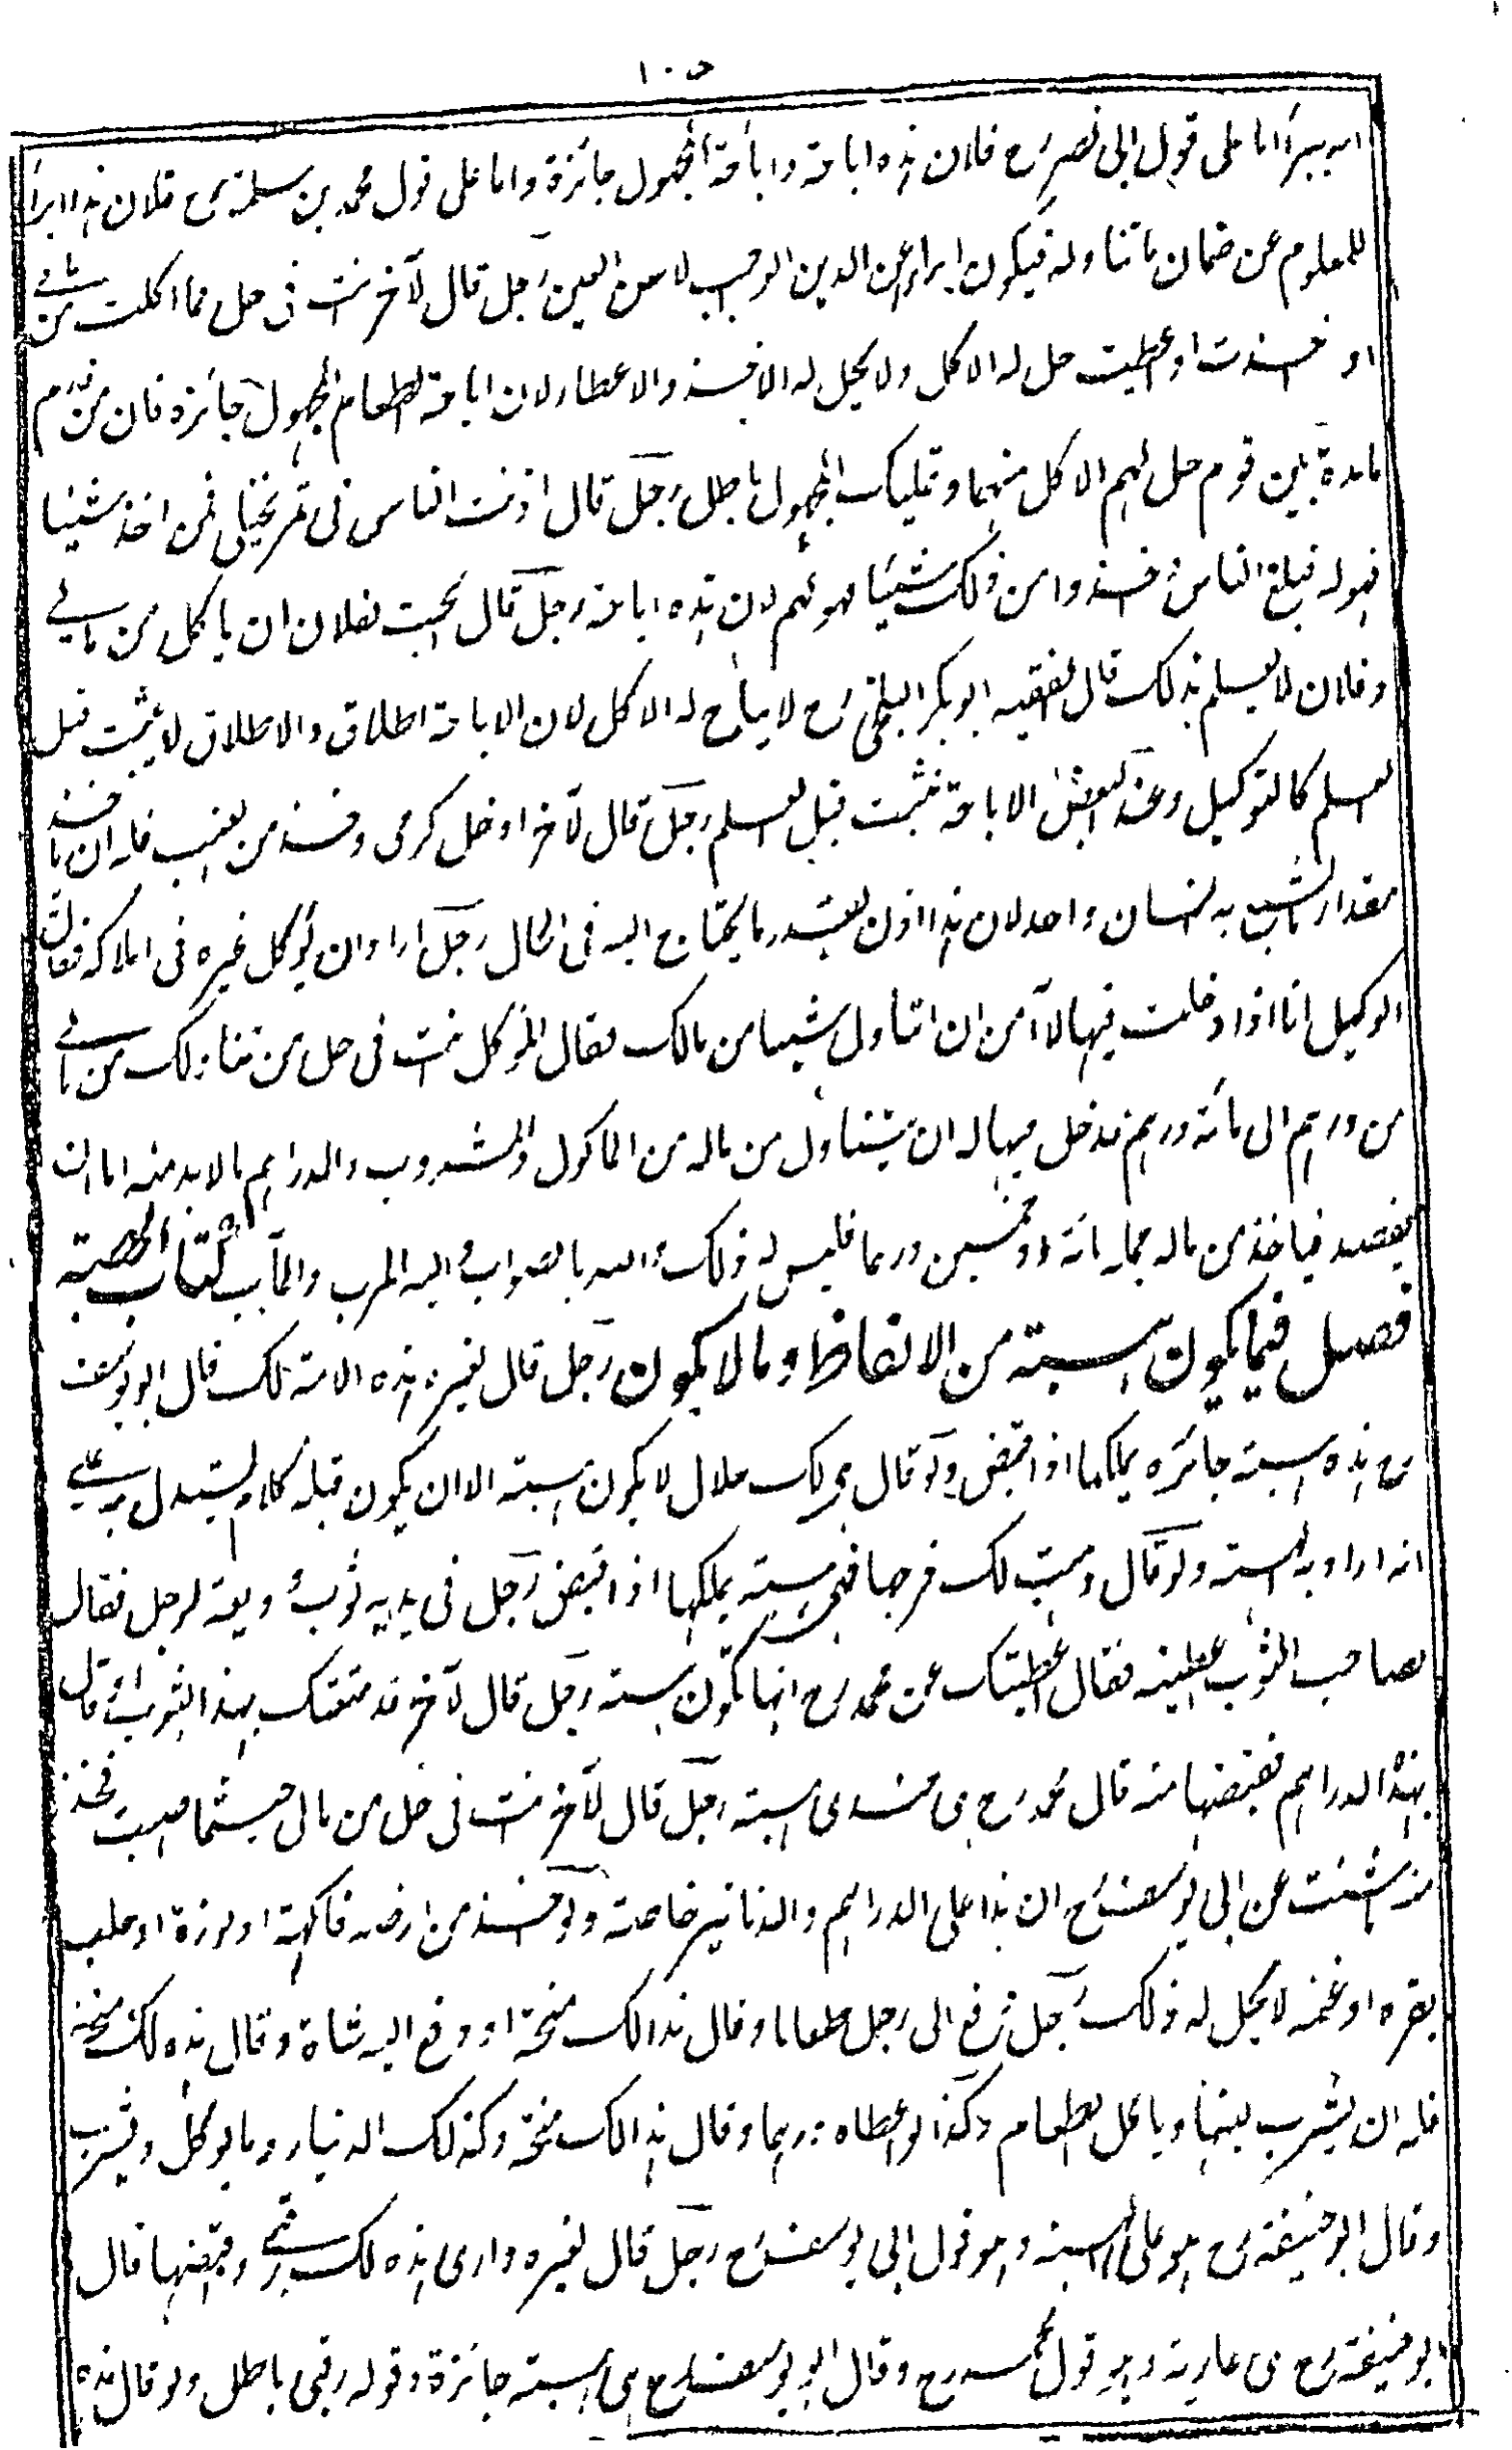 ١٠٥
انه يبرأ اما على قول ابى نصر رح فلان هذه اباحة واباحة المجهول جائزة واما على قول محمد بن سلمة رح فلان هذا ابراء
للمعلوم عن ضمان ما تناوله فيكون ابراء عن الدين الواجب لا عن العين رجل قال لآخر انت فى حل مما اكلت من مالى
او اخذت او اعطيت حل له الاكل ولا يحل له الاخذ والاعطاء لان اباحة الطعام المجهول جائزة فان من قدم
مائدة بين قوم حل لهم الاكل منها وتمليك المجهول باطل رجل قال اذنت الناس فى ثمر نخيلى فمن اخذ شيئا
فهو له فبلغ الناس واخذوا من ذلك شيئا فهو لهم لان هذه اباحة رجل قال ابحت لفلان ان ياكل من مالى
وفلان لا يعلم بذلك قال الفقيه ابو بكر البلخى رح لا يباح له الاكل لان الاباحة اطلاق والاطلاق لا يثبت قبل
العلم كالتوكيل وعند البعض الاباحة تثبت قبل العلم رجل قال لآخر ادخل كرمى وخذ من العنب فله ان ياخذ
مقدار ما يشبع به انسان واحد لان هذا اذن بقدر ما يحتاج اليه فى الحال رجل اراد ان يوكل غيره فى املاكه فقال
الوكيل انا اذا دخلت فيها لا آمن ان اتناول شيئا من مالك فقال الموكل انت فى حل من تناولك من مالى
من درهم الى مائة درهم فدخل فيها له ان يتناول من ماله من الماكول والمشروب والدراهم ما لا بد منه اما ان
يقصد فياخذ من ماله جملة مائة او خمسين درهما فليس له ذلك والله اعلم بالصواب واليه المرجع والمآب كتاب الهبة
فصل فيما يكون هبة من الالفاظ وما لا يكون رجل قال لغيره هذه الامة لك قال ابو يوسف
رح هذه هبة جائزة يملكها اذا قبض ولو قال هى لك حلال لا يكون هبة الا ان يكون قبله كلام يستدل به على
انه اراد به الهبة ولو قال وهبت لك فرجها فهى هبة يملكها اذا قبض رجل فى يديه ثوب وديعة لرجل فقال
لصاحب الثوب اعطينه فقال اعطيتك عن محمد رح انها تكون هبة رجل قال لآخر قد متعتك بهذا الثوب او قال
بهذه الدراهم فقبضها منه قال محمد رح هى عندى هبة رجل قال لآخر انت فى حل من مالى حيثما اصبت فخذ
منه ما شئت عن ابى يوسف رح ان هذا على الدراهم والدنانير خاصة ولو اخذ من ارضه فاكهة او ارزة او حلب
بقره او غنمه لا يحل له ذلك رجل دفع الى رجل طعاما وقال هذا لك منحة او دفع اليه شاة وقال هذه لك منحة
فله ان يشرب لبنها وياكل الطعام وكذا لو اعطاه درهما وقال هذا لك منحة وكذلك الدنيار وما يوكل ويشرب
وقال ابو حنيفة رح هو على الهبة وهو قول ابى يوسف رح رجل قال لغيره دارى هذه لك رقبى وقبضها قال
ابو حنيفة رح هى عارية وهو قول محمد رح وقال ابو يوسف رح هى هبة جائزة وقوله رقبى باطل ولو قال هذه